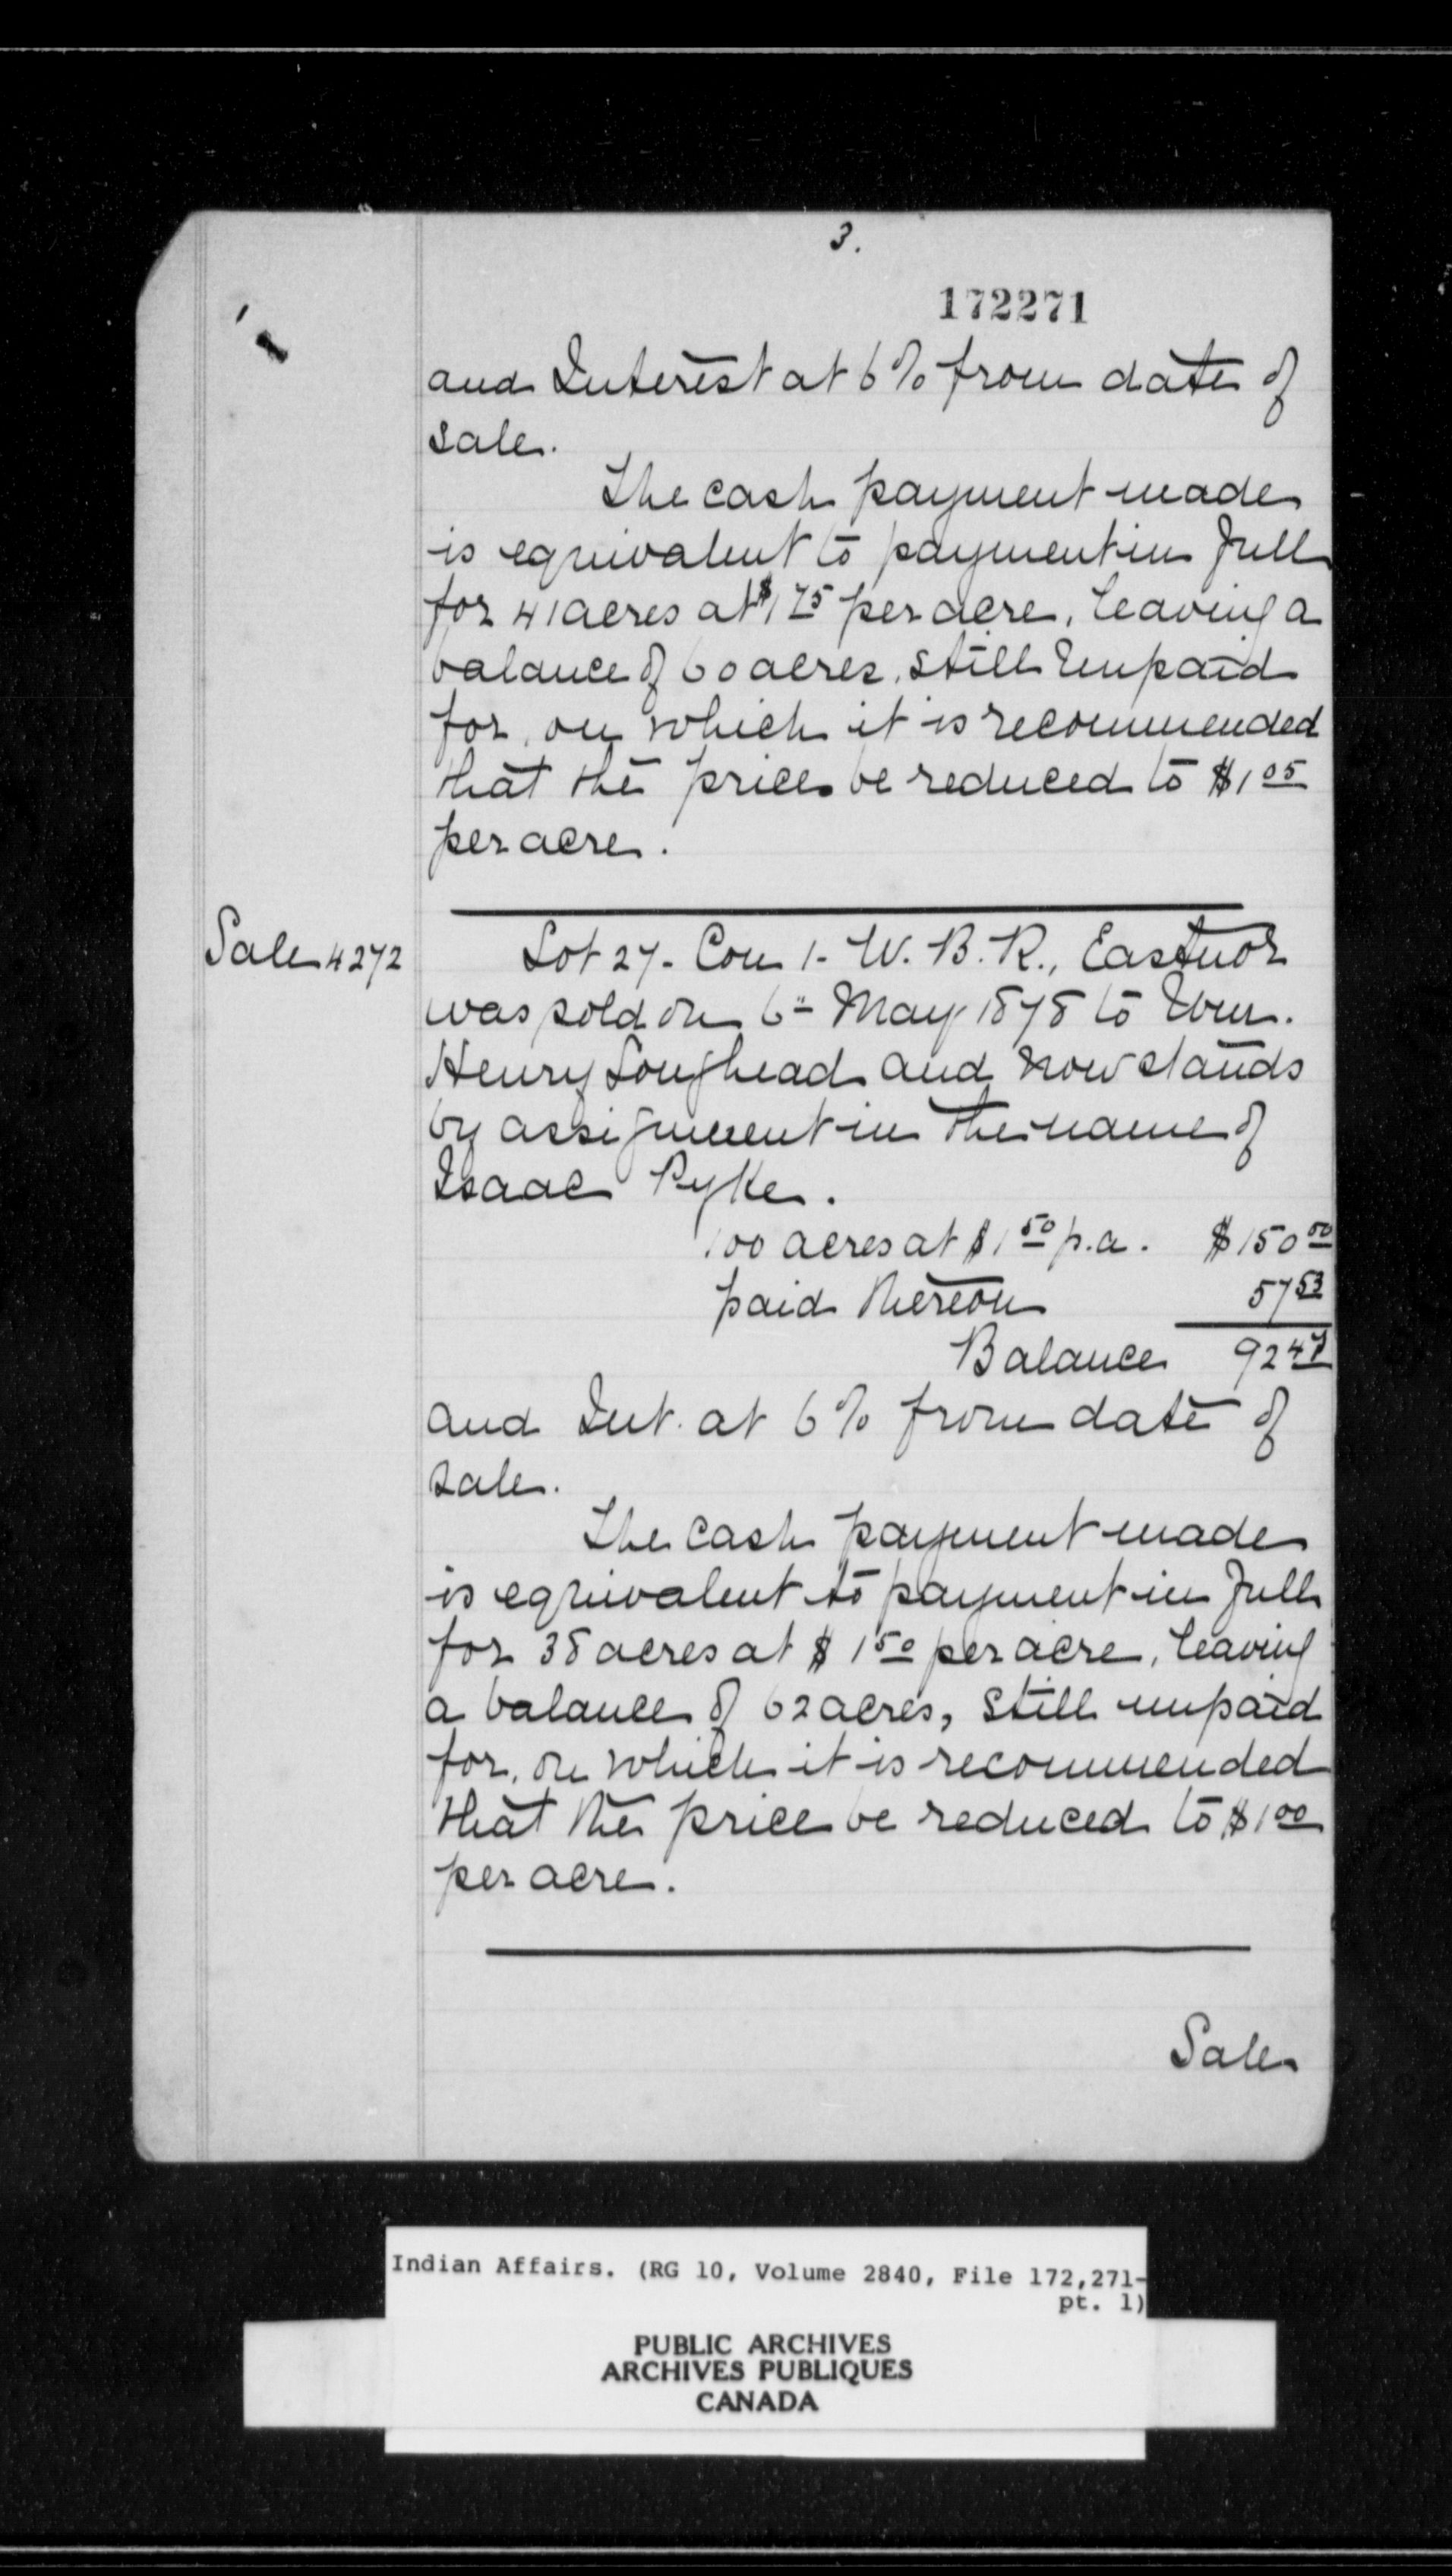 3.
172271
and Interest at 6% from date of
sale.
The cash payment made
is equivalent to payment in full
for 41 acres at $1 75 per acre, leaving a
balance of 60 acres, still unpaid
for, on which it is recommended
that the price be reduced to $1 05
per acre.
Sale 4272
Lot 27- Con 1- W. B. R., Eastnor
was sold on 6" May 1878 to Wm.
Henry Loughead and now stands
by assignment in the name of
Isaac Pyke.
100 acres at $1 50 p.a. $150 00
paid thereon 57 53
Balance 92 47
and Int. at 6% from date of
sale.
The cash payment made
is equivalent to payment in full
for 38 acres at $1 50 per acre, leaving
a balance of 62 acres, still unpaid
for, on which it is recommended
that the price be reduced to $1 00
per acre.
Sale
Indian Affairs. (RG 10, Volume 2840, File 172,271-
pt. 1)
PUBLIC ARCHIVES
ARCHIVES PUBLIQUES
CANADA